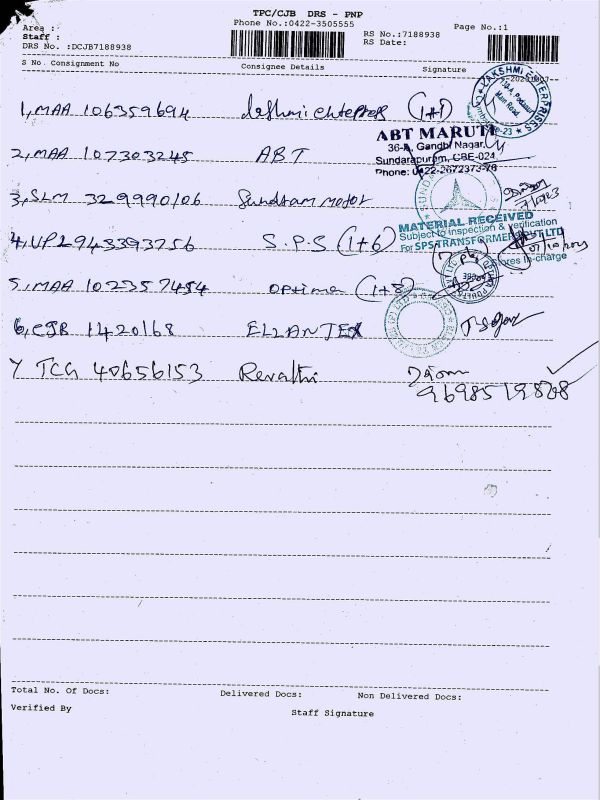 TPC/CJB DRS - PNP
Phone No.:0422-3505555
Page No.:1
Area :
Staff :
DRS No. :DCJB7188938
RS No.:7188938
RS Date:
S No. Consignment No Consignee Details Signature
1, MAA 106359694 (1+1)
LAKSHMI ENTERPRISES
Main Road
2, MAA 107303245 ABT
ABT MARUTI
36-A, Gandhi Nagar,
Sundarapuram, CBE-024.
Phone: 0422-2672373-76
3, SLM 329990106 Sundram motor
4, VPL 943393756 S.P.S (1+6)
MATERIAL RECEIVED
Subject to inspection & verification
For SPS TRANSFORMERS PVT LTD
Stores in-charge
5, MAA 102357454 optima (1+8)
6, CJB 1420168 ELLANTEX
7 TCG 40656153 Revathi
Total No. Of Docs: Delivered Docs: Non Delivered Docs:
Verified By
Staff Signature